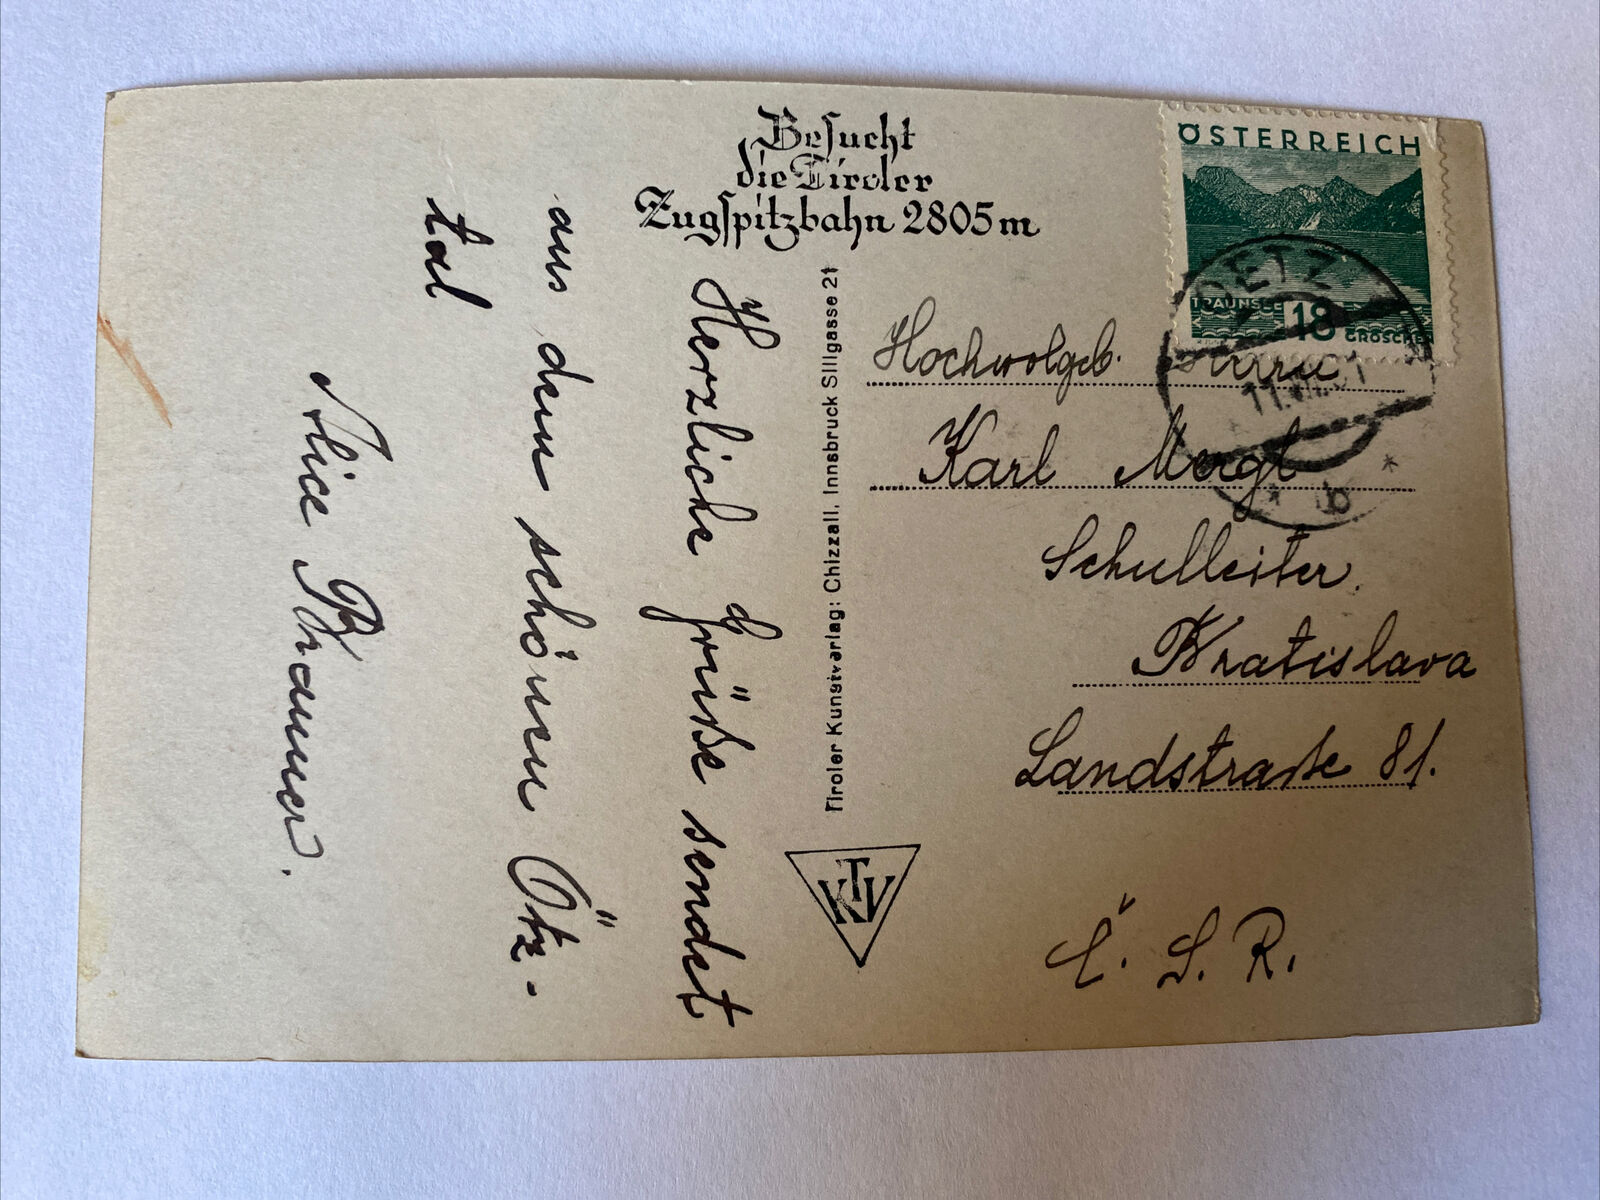 Besucht
die Tiroler
Zugspitzbahn 2805 m
ÖSTERREICH
TRAUNSEE 18 GROSCHEN
OETZ
* b *
Herzliche Grüße sendet
aus dem schönen Ötz-
tal
Alice Brauner.
Tiroler Kunstverlag: Chizzali, Innsbruck Sillgasse 21
TKV
Hochwolgeb. Herrn
Karl Mergl
Schulleiter.
Bratislava
Landstraße 81.
Č. S. R.